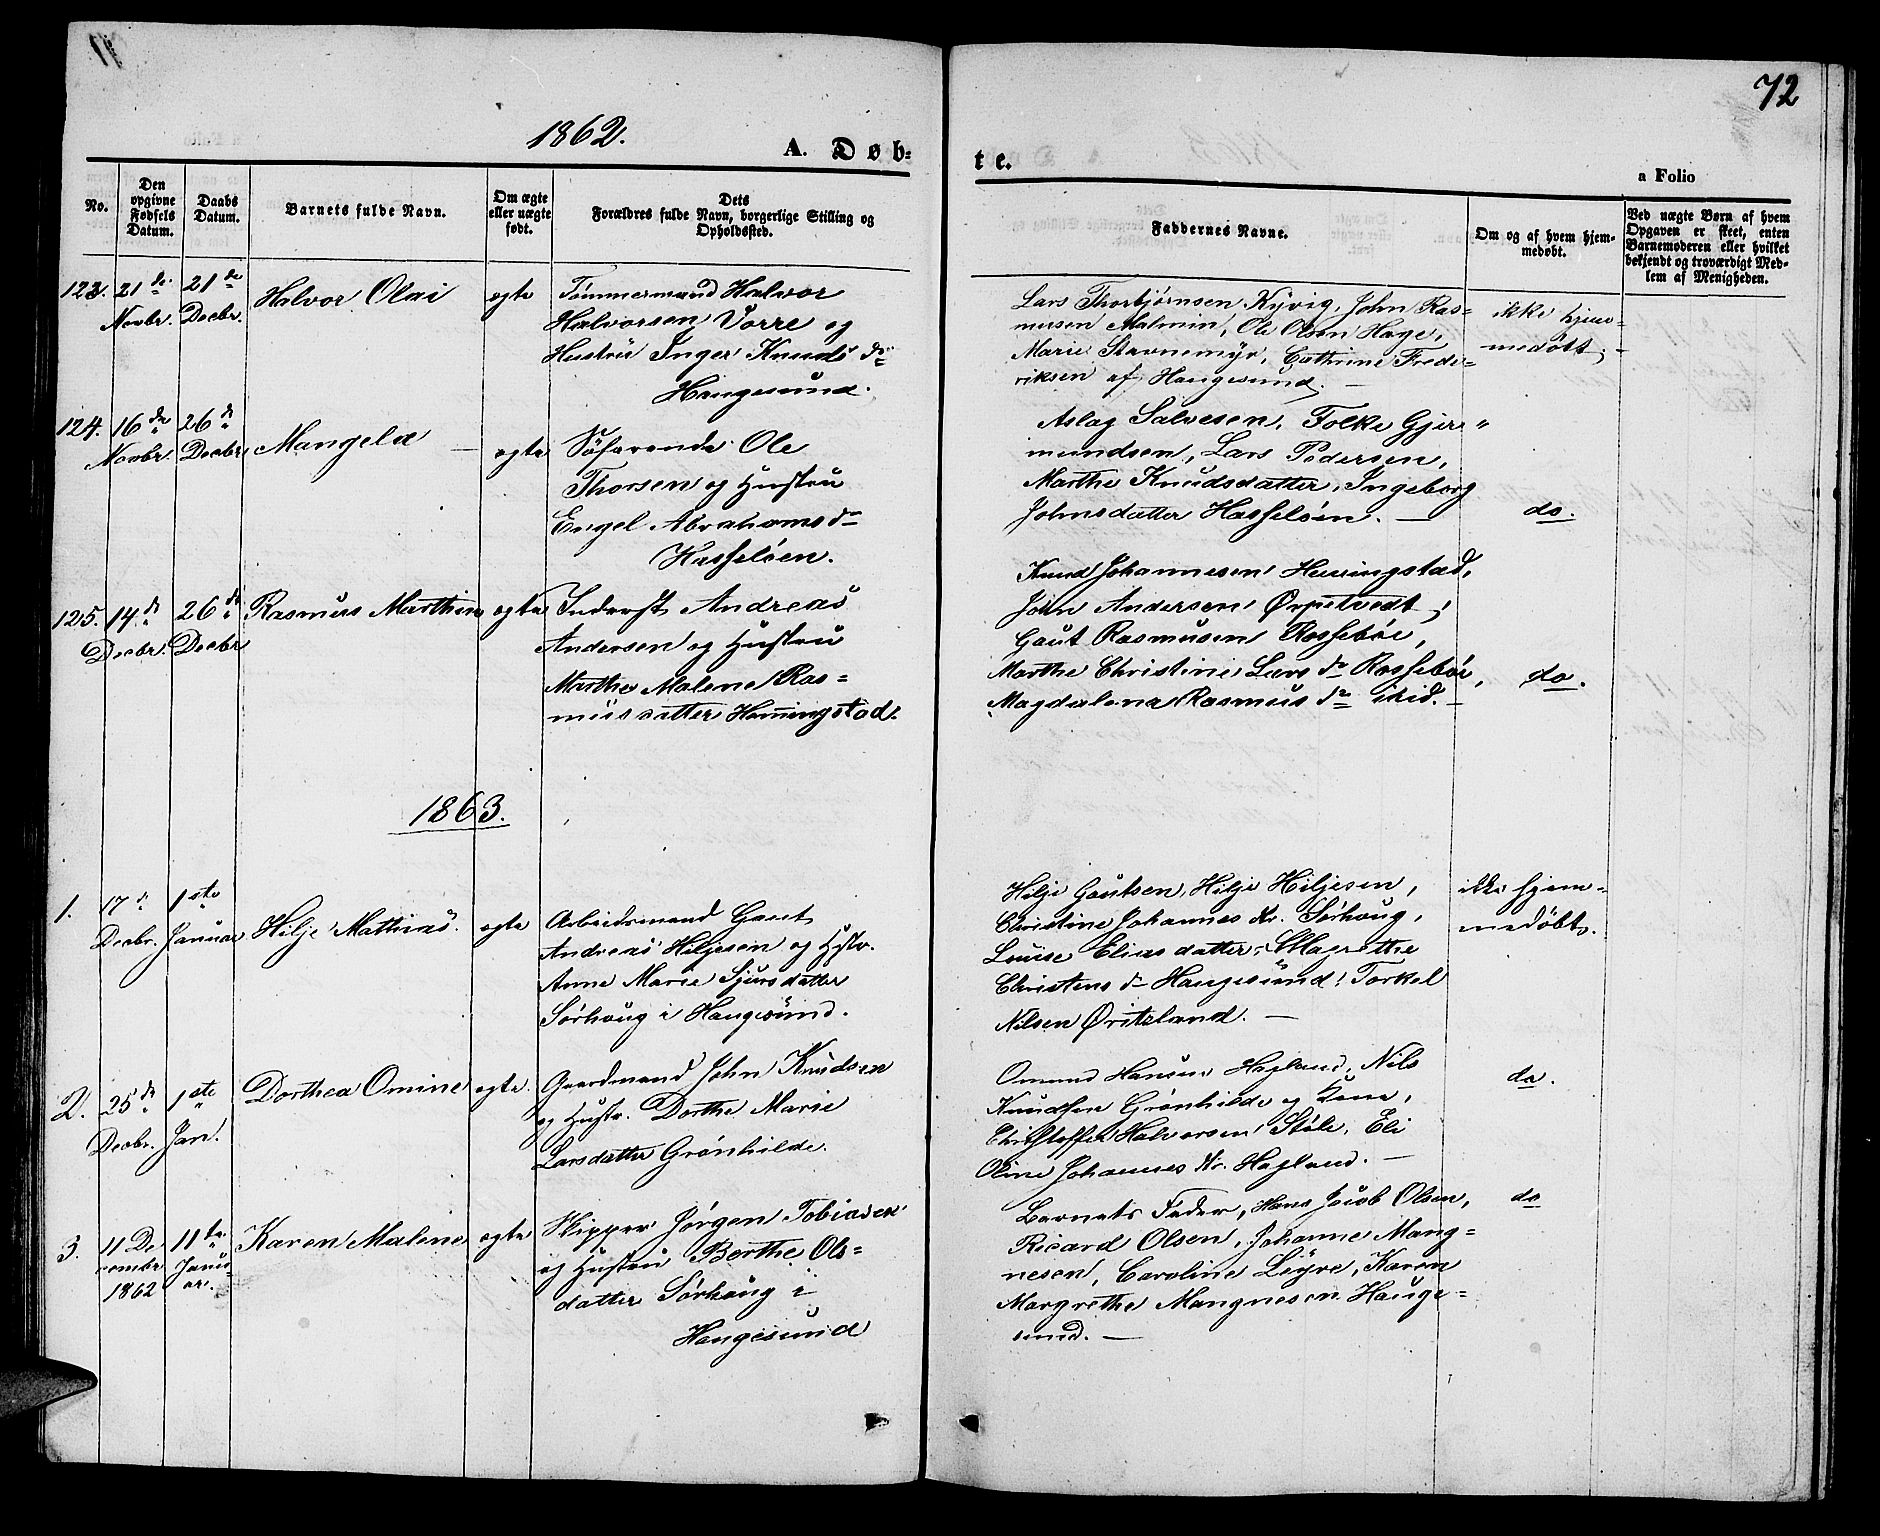 72
1862.
A. Døb-
te.
a Folio
No.
Den opgivne Fødsels Datum.
Daabs Datum.
Barnets fulde Navn.
Om ægte eller uægte født.
Dets Forældres fulde Navn, borgerlige Stilling og Opholdssted.
Faddernes Navne.
Om og af hvem hjemmedøbt.
Ved uægte Børn af hvem Opgaven er skeet, enten Barnemoderen eller hvilket bekjendt og troværdigt Medlem af Menigheden.
123. 21de Novbr. 21de Decbr. Halvor Olai ægte
Tømmermand Halvor
Halvorsen Vorre og
Hustru Inger Knuds dr
Haugesund.
Lars Thorbjørnsen Kyvig, John Ras-
musen Malmin, Ole Olsen Hage,
Marie Stavnemyr, Cathrine Frede-
riksen af Haugesund. —
ikke hjem-
medøbt.
124. 16de Novbr. 26de Decbr. Mangela — ægte
Søfarende Ole
Thorsen og Hustru
Engel Abrahams dr
Hasseløen.
Aslag Salvesen, Folke Gjer-
mundsen, Lars Pedersen,
Marthe Knudsdatter, Ingeborg
Johnsdatter Hasseløen. —
do.
125. 14de Decbr. 26de Decbr Rasmus Marthin ægte
Inderst Andreas
Andersen og Hustru
Marthe Malene Ras-
musdatter Hemingstad.
Knud Johannesen Hemingstad,
John Andersen Ørpetvedt,
Gaut Rasmusen Rossebøe,
Marthe Christine Lars dr Rossebøe,
Magdalena Rasmus dr ibid. —
do.
1863.
1. 17de Decbr. 1ste Januar Hilje Mathias. ægte
Arbeidsmand Gaut
Andreas Hiljesen og Hstr.
Anne Marie Sjursdatter
Sørhaug i Haugesund.
Hilje Gautsen, Hilje Hiljesen,
Christine Johannes dr. Sørhaug,
Louise Eliasdatter, Magrethe
Christens dr Haugesund, Torkel
Nilsen Øritsland. —
ikke hjem-
medøbt.
2. 25de Decbr. 1ste Jan. Dorthea Omine ægte.
Gaardmand John Knudsen
og Hustr. Dorthe Marie
Larsdatter Grønhilde.
Omund Hansen Hagland, Nils
Knudsen Grønhilde og Kone,
Christoffer Halvorsen Støle, Eli
Oline Johannes dr. Hagland. —
do.
3. 11 De-
cembr
1862 11te Janu-
ar. Karen Malene ægte
Skipper Jørgen Tobiasen
og Hustru Berthe Ols-
datter Sørhaug i
Haugesund
Barnets Fader, Hans Jacob Olsen,
Ricard Olsen, Johanne Mang-
nesen, Caroline Løyre, Karen
Margrethe Mangnesen Hauge-
sund. —
do